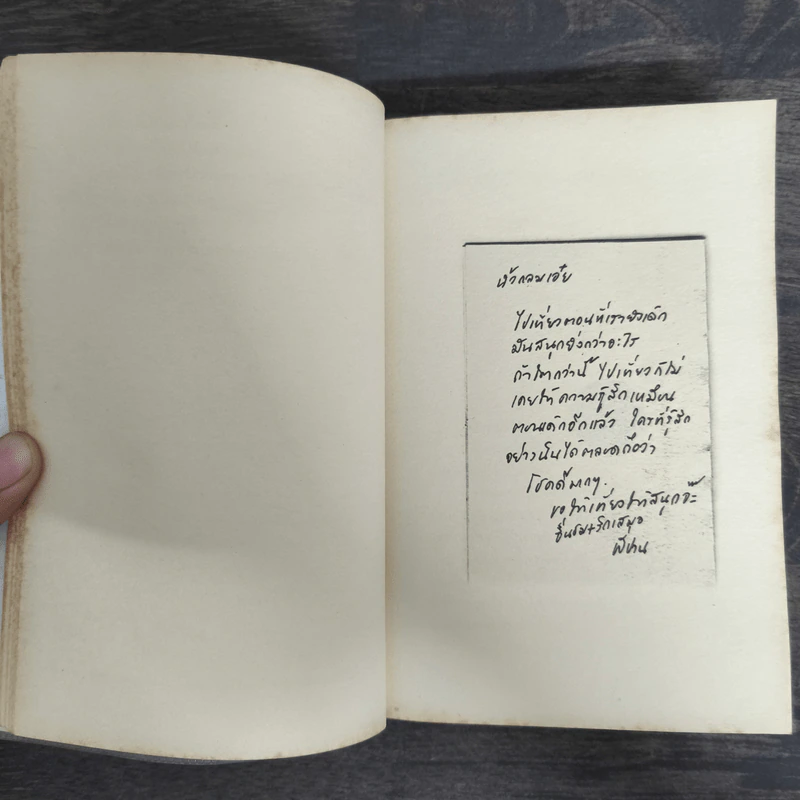 หัวกลมเอ๋ย
ไปเที่ยวตอนที่เรายังเด็ก
มันสนุกยิ่งกว่าอะไร
ถ้าโตกว่านี้ ไปเที่ยวก็ไม่
เคยให้ความรู้สึกเหมือน
ตอนเด็กอีกแล้ว ใครที่รู้สึก
อย่างนั้นได้ตลอดถือว่า
โชคดีมากๆ.
ขอให้เที่ยวให้สนุกจ๊ะ
ชื่นชม+รักเสมอ